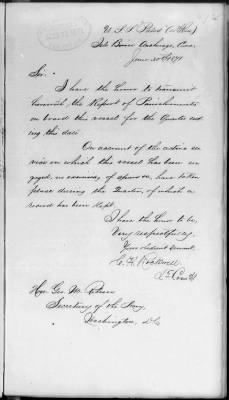 U. S. S. 
Isle Boisée Anchorage, Corea
June 30th 1871
Sir:
I have the honor to transmit
herewith, the Report of Punishments
on board this vessel for the Quarter end
ing this date.
On account of the active ser
vice on which this vessel has been en
gaged, no exercises, of have taken
place during the Quarter, of which a
record has been kept.
I have the honor to be,
Very respectfully,
Your obedient servant
C. H. Rockwell
Lt Com'd'g
Hon. Geo. M. Robeson
Secretary of the Navy,
Washington, D.C.